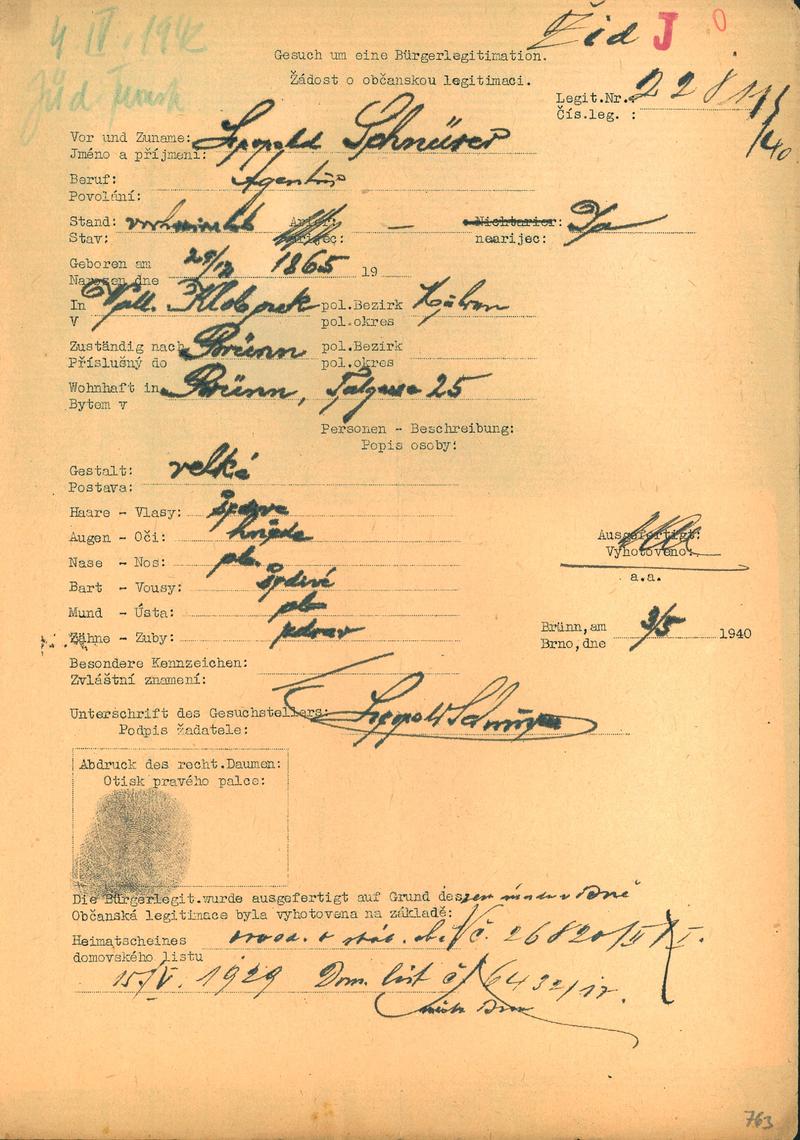 4 IV. 1942
Žid J 0
Gesuch um eine Bürgerlegitimation.
Žádost o občanskou legitimaci.
Legit.Nr.:
Čís.leg. :
/40
Vor und Zuname: Leopold Schnürer
Jméno a příjmení:
Beruf: Agent
Povolání:
Stand: Arier: — Nichtarier: Ja
Stav: arijec: nearijec:
Geboren am 29/12 1865 19
Narozen dne
In Klobouk pol.Bezirk
V pol.okres
Zuständig nach Brünn pol.Bezirk
Příslušný do pol.okres
Wohnhaft in Brünn, Talgasse 25
Bytem v
Personen - Beschreibung:
Popis osoby:
Gestalt: velká
Postava:
Haare - Vlasy: šedivé
Augen - Oči: hnědé
Nase - Nos:
Bart - Vousy: šedivé
Mund - Ústa:
Zähne - Zuby: zdravé
Ausgefertigt:
Vyhotoveno:
a.a.
Brünn, am 3/5 1940
Brno, dne
Besondere Kennzeichen:
Zvláštní znamení:
Unterschrift des Gesuchstellers: Leopold Schnürer
Podpis žadatele:
Abdruck des recht.Daumen:
Otisk pravého palce:
Die Bürgerlegit.wurde ausgefertigt auf Grund des
Občanská legitimace byla vyhotovena na základě:
Heimatscheines č. 26820/II
domovského listu
15/V. 1929 Dom. list č. 6432/
763